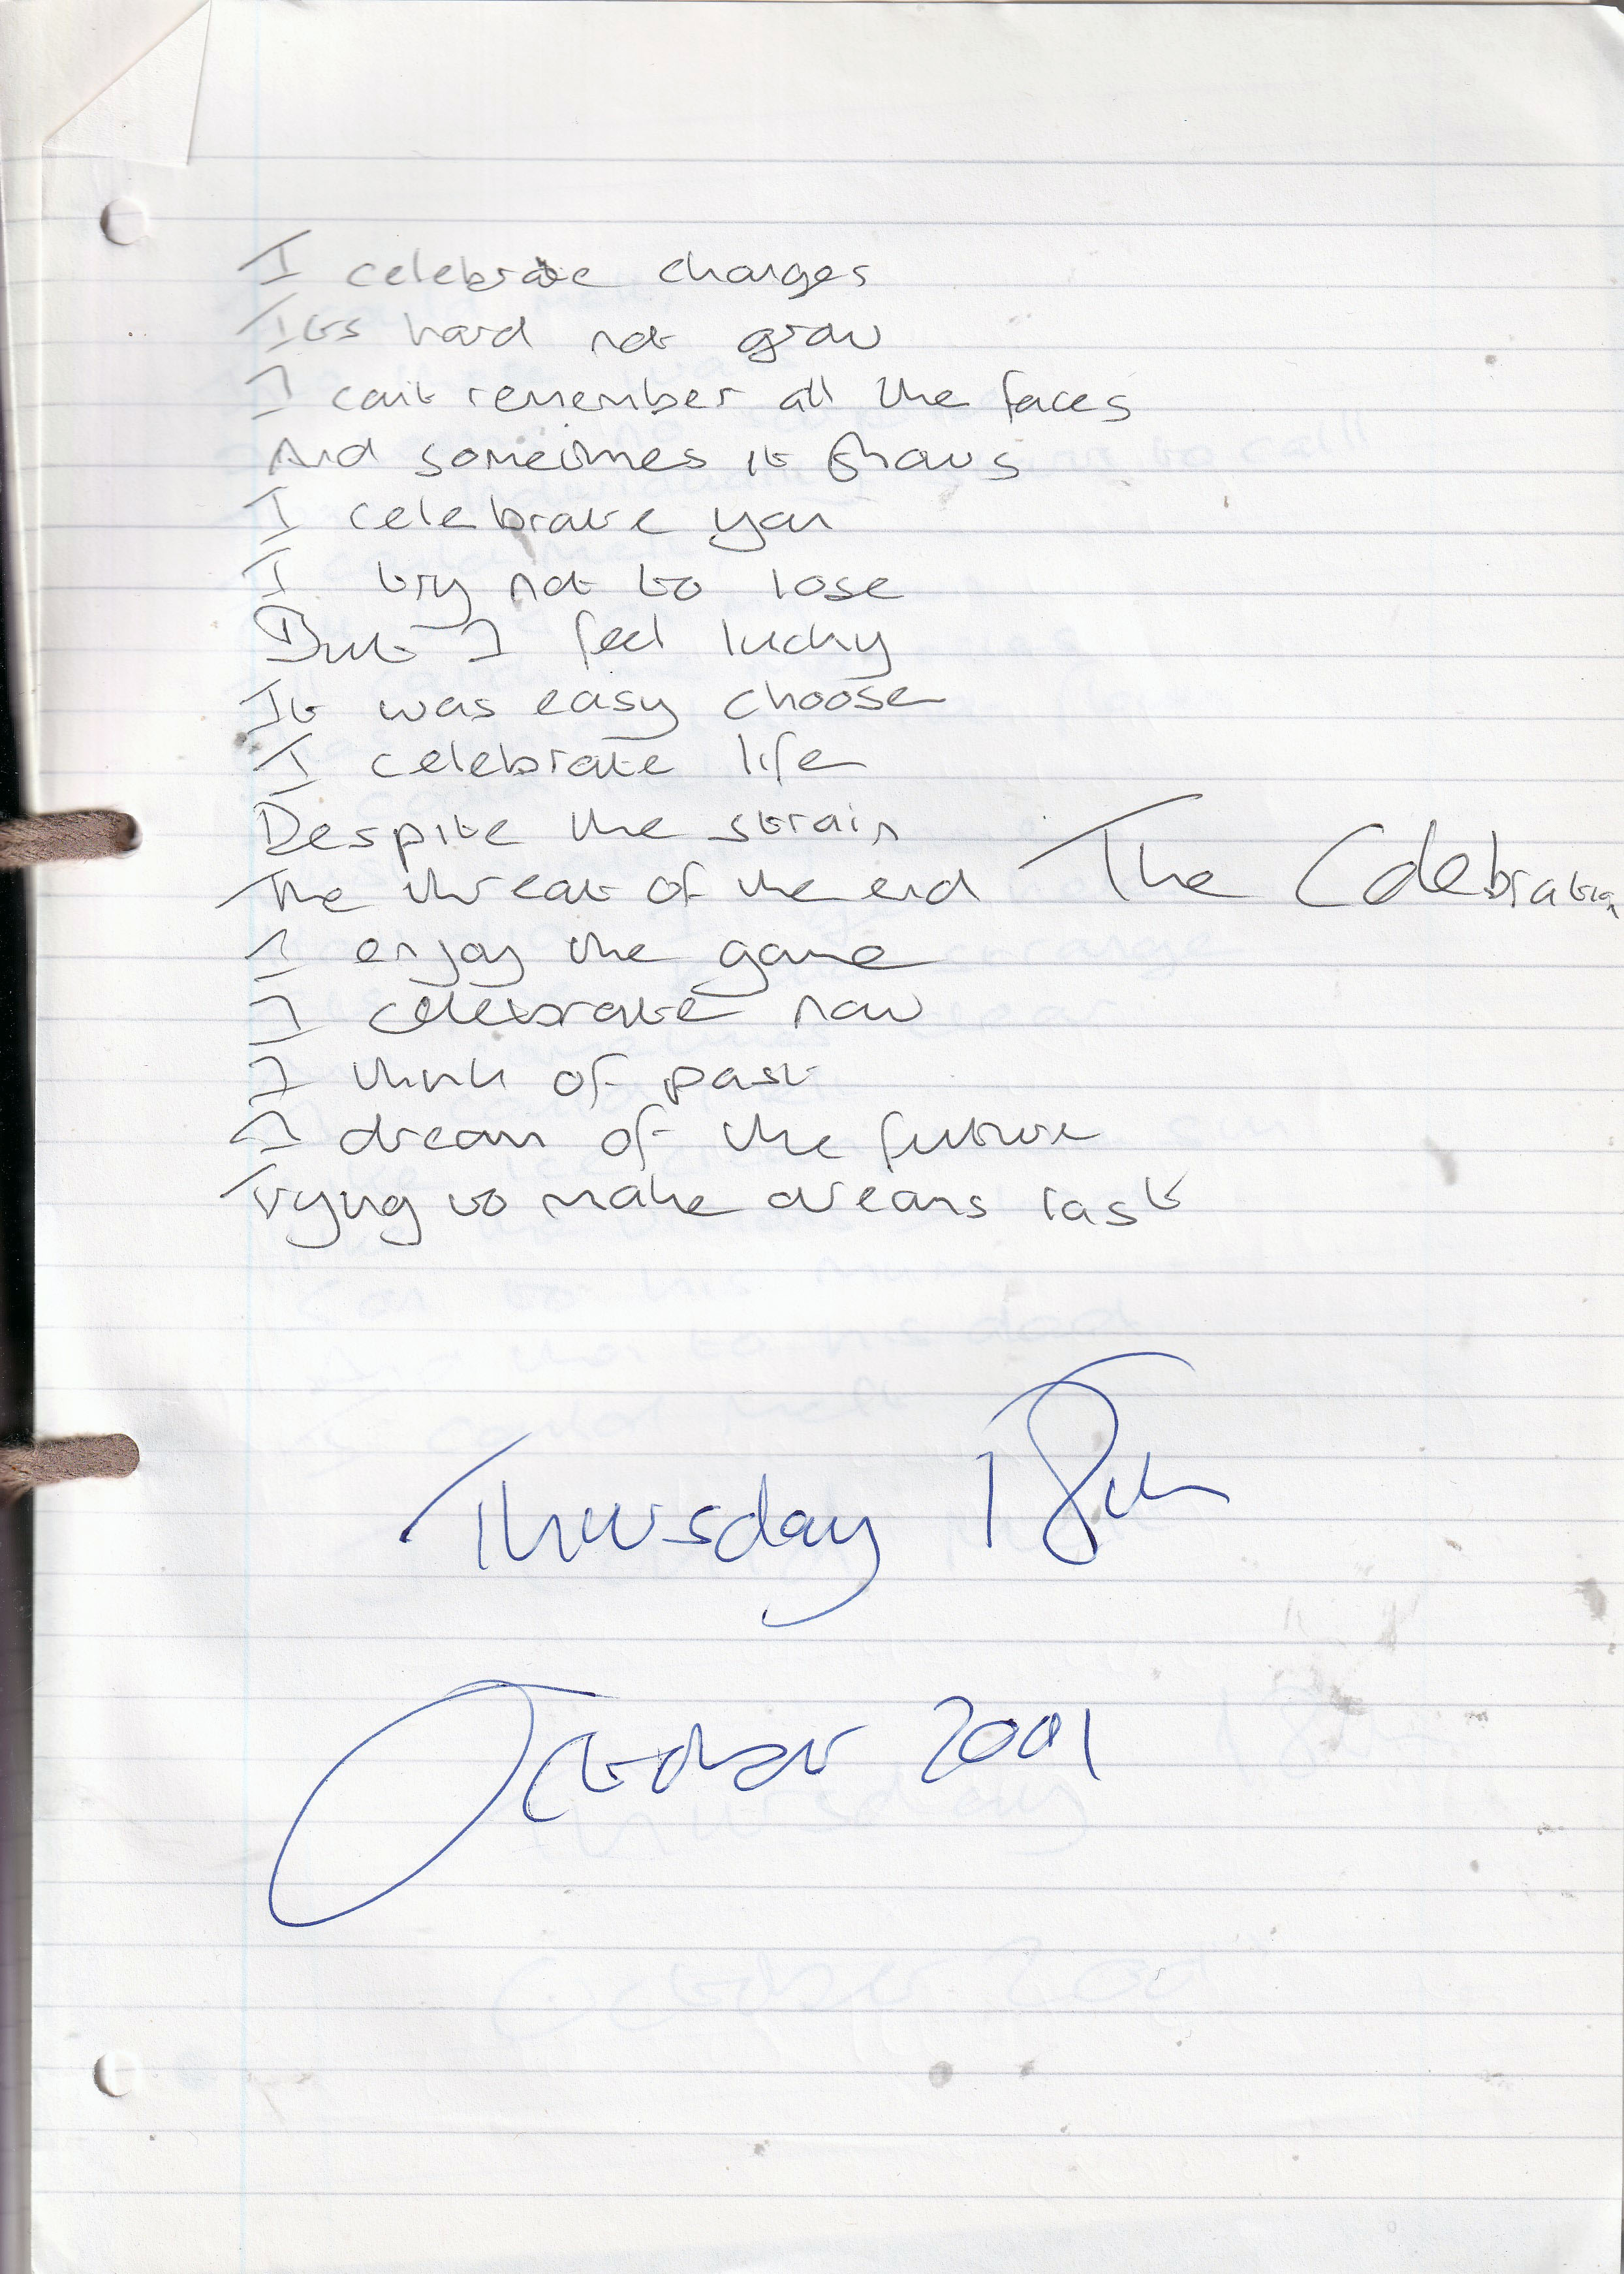 I celebrate changes
Its hard not grow
I can't remember all the faces
And sometimes it shows
I celebrate you
I try not to lose
But I feel lucky
It was easy choose
I celebrate life
Despite the strain
The threat of the end
The Celebration
I enjoy the game
I celebrate now
I think of past
I dream of the future
Trying to make dreams last
Thursday 18th
October 2001